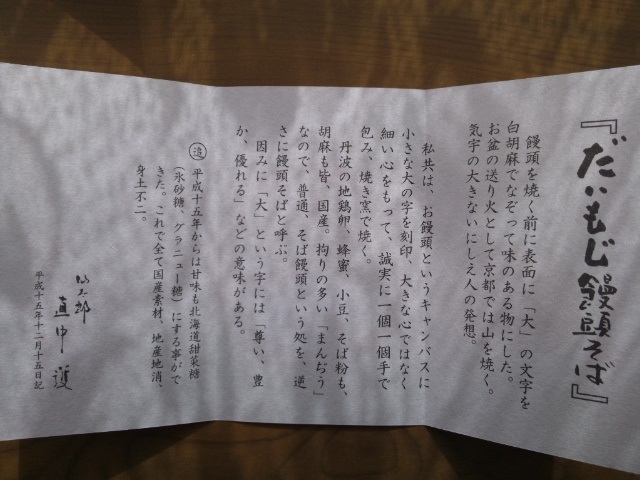 『だいもじ饅頭そば』
饅頭を焼く前に表面に「大」の文字を
白胡麻でなぞって味のある物にした。
お盆の送り火として京都では山を焼く。
気宇の大きないにしえ人の発想。
私共は、お饅頭というキャンバスに
小さな大の字を刻印、大きな心ではなく
細い心をもって、誠実に一個一個手で
包み、焼き窯で焼く。
丹波の地鶏卵、蜂蜜、小豆、そば粉も、
胡麻も皆、国産。拘りの多い「まんぢう」
なので、普通、そば饅頭という処を、逆
さに饅頭そばと呼ぶ。
因みに「大」という字には「尊い、豊
か、優れる」などの意味がある。
追 平成十五年からは甘味も北海道甜菜糖
(氷砂糖、グラニュー糖)にする事がで
きた。これで全て国産素材、地産地消、
身土不二。
直中護
平成十五年十二月十五日記